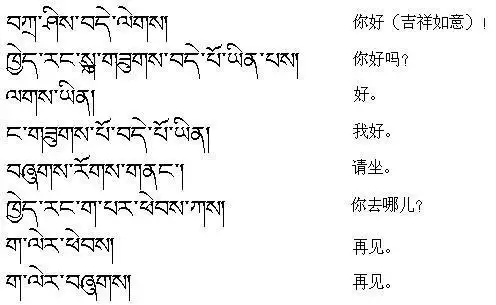 བཀྲ་ཤིས་བདེ་ལེགས། 你好（吉祥如意）！
ཁྱེད་རང་སྐུ་གཟུགས་བདེ་པོ་ཡིན་པས། 你好吗？
ལགས་ཡིན། 好。
ང་གཟུགས་པོ་བདེ་པོ་ཡིན། 我好。
བཞུགས་རོགས་གནང་། 请坐。
ཁྱེད་རང་ག་པར་ཕེབས་ཀས། 你去哪儿？
ག་ལེར་ཕེབས། 再见。
ག་ལེར་བཞུགས། 再见。